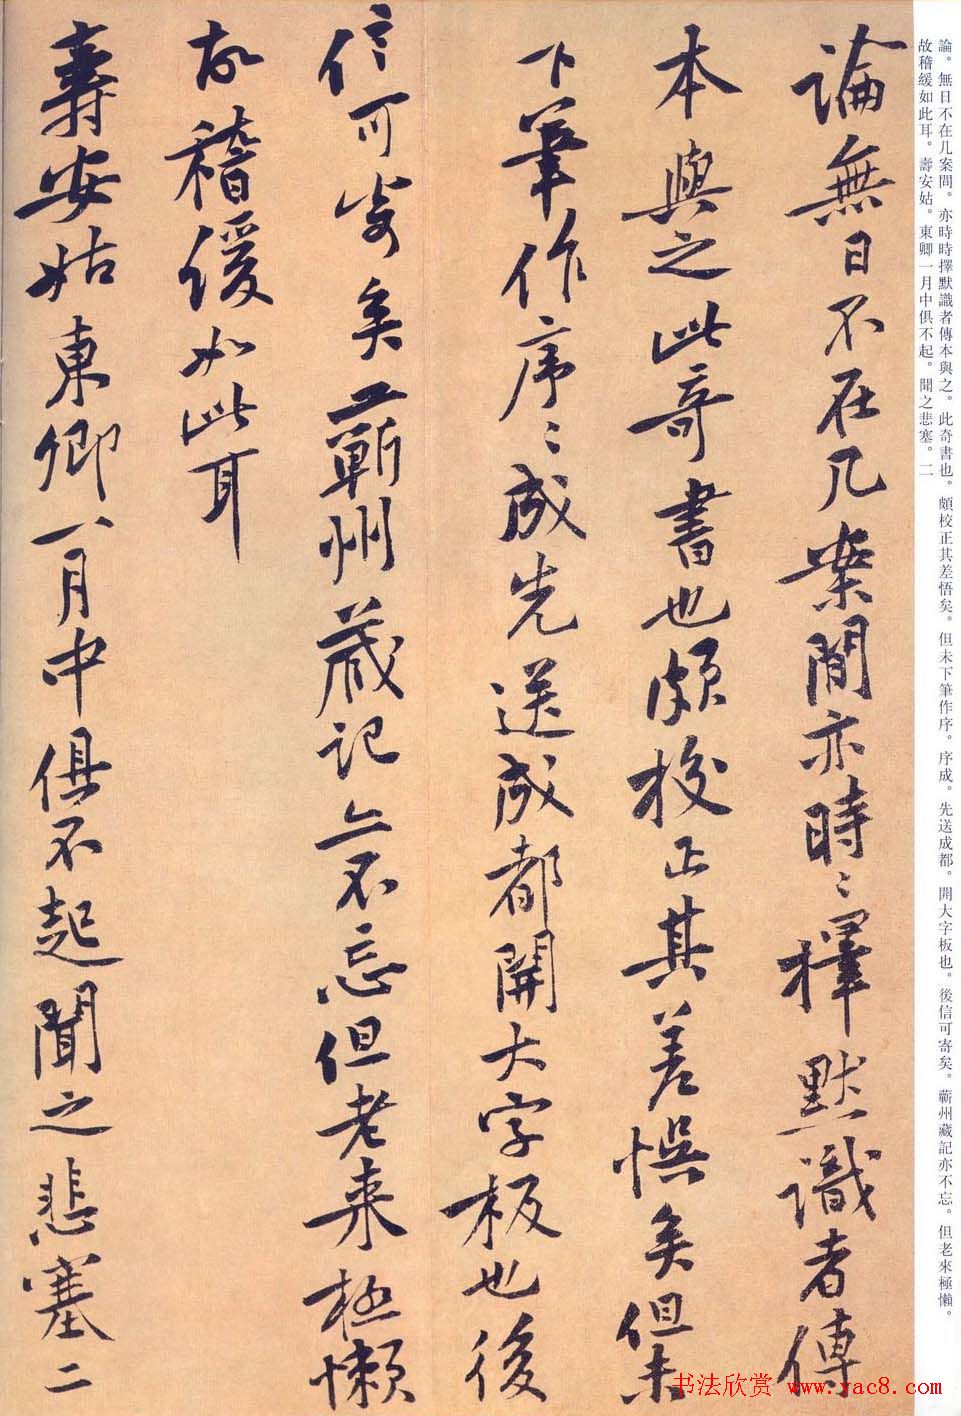 論無日不在几案間亦時〻擇默識者傳
本與之此奇書也頗校正其差悞矣但未
下筆作序〻成先送成都開大字板也後
信可寄矣蘄州藏記亦不忘但老来極懶
故稽緩如此耳
壽安姑東卿一月中俱不起聞之悲塞二
論。無日不在几案間。亦時時擇默識者傳本與之。此奇書也。頗校正其差悟矣。但未下筆作序。序成。先送成都。開大字板也。後信可寄矣。蘄州藏記亦不忘。但老來極懶。
故稽緩如此耳。壽安姑。東卿一月中俱不起。聞之悲塞。二
书法欣赏 www.yac8.com